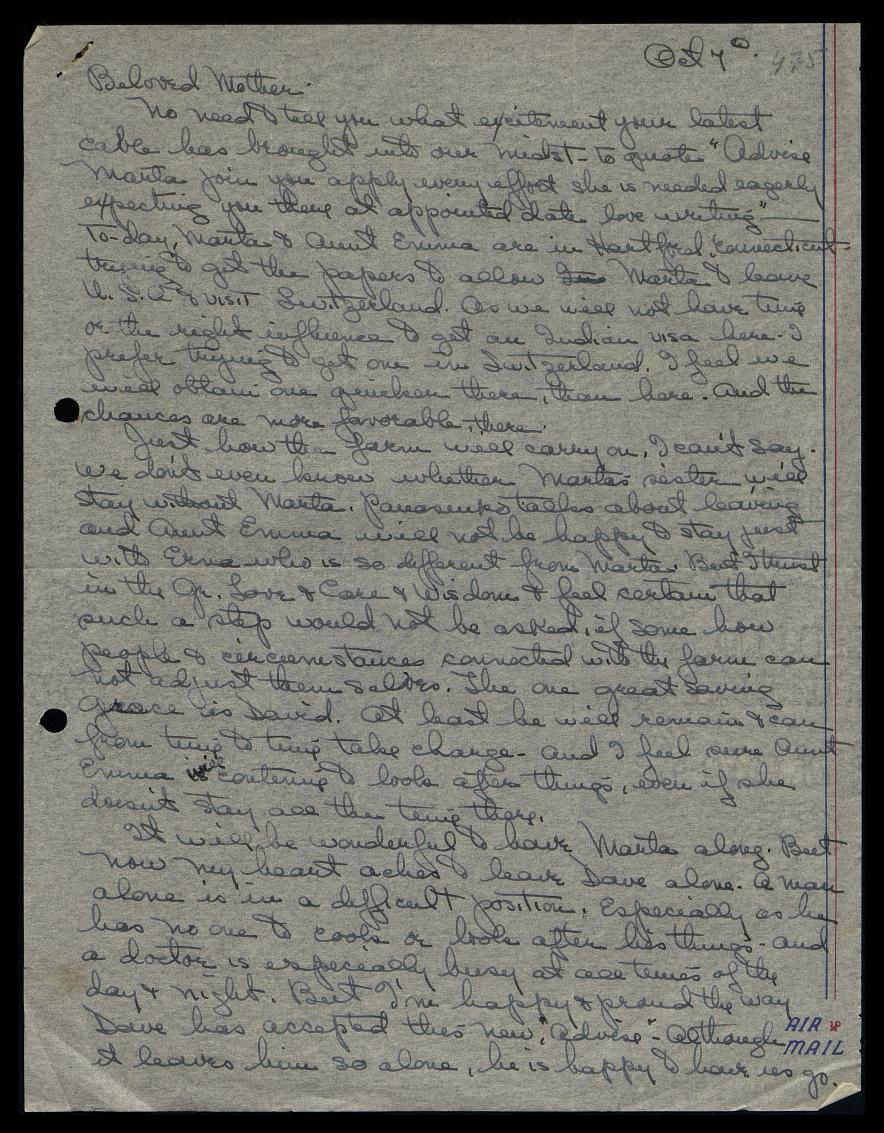 Oct 7º. 475
Beloved Mother.
No need to tell you what excitement your latest
cable has brought into our midst - to quote "Advise
Marta join you apply every effort she is needed eagerly
expecting you there at appointed date love writing"
To-day, Marta & Aunt Emma are in Hartford, Connecticut
trying to get the papers to allow Marta to leave
U.S.A & visit Switzerland. As we will not have time
or the right influence to get an Indian visa here - I
prefer trying to get one in Switzerland. I feel we
will obtain one quicker there, than here. And the
chances are more favorable, there.
Just how the farm will carry on, I can't say.
We don't even know whether Marta's sister will
stay without Marta. Panasenko talks about leaving
and Aunt Emma will not be happy to stay just
with Erna who is so different from Marta. But I trust
in the Gr. Love & Care & Wisdom & feel certain that
such a step would not be asked, if some how
people & circumstances connected with the farm can
not adjust themselves. The one great saving
grace is David. At least he will remain & can
from time to time take charge - and I feel sure Aunt
Emma will continue to look after things, even if she
doesn't stay all the time there.
It will be wonderful to have Marta along. But
now my heart aches to leave Dave alone. A man
alone is in a difficult position. Especially as he
has no one to cook or look after his things - and
a doctor is especially busy at all times of the
day & night. But I'm happy & proud the way
Dave has accepted this new "advise" - Although
it leaves him so alone, he is happy to have us go.
AIR MAIL